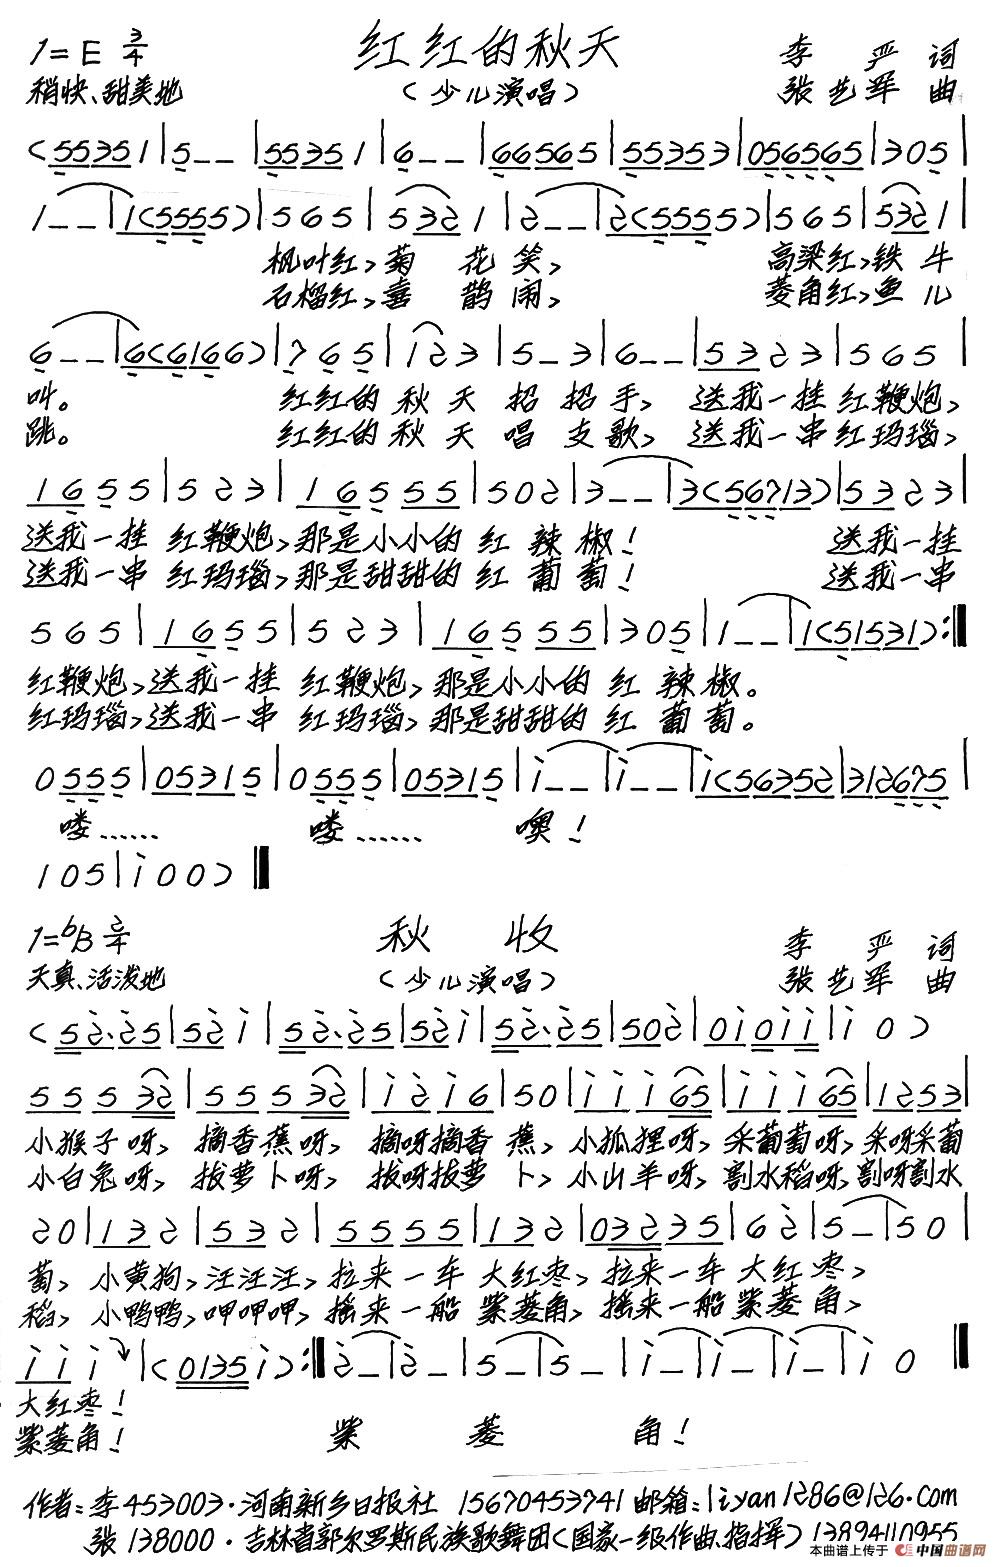 1=E 3/4 红红的秋天 李严 词
稍快、甜美地 (少儿演唱) 张艺军 曲
(5 5 3 5 1 | 5 - - | 5 5 3 5 1 | 6 - - | 6 6 5 6 5 | 5 5 3 5 3 | 0 5 6 5 6 5 | 3 0 5 |
1 - - | 1 (5 5 5 5) | 5 6 5 | 5 3 2 1 | 2 - - | 2 (5 5 5 5) | 5 6 5 | 5 3 2 1 |
枫叶红,菊 花 笑, 高梁红,铁 牛
石榴红,喜 鹊 闹, 菱角红,鱼 儿
6 - - | 6 (6 1 6 6) | 7 6 5 | 1 2 3 | 5 - 3 | 6 - - | 5 3 2 3 | 5 6 5 |
叫。 红红的 秋 天 招 招 手, 送我一挂 红鞭炮,
跳。 红红的 秋 天 唱 支 歌, 送我一串 红玛瑙,
1 6 5 5 | 5 2 3 | 1 6 5 5 5 | 5 0 2 | 3 - - | 3 (5 6 7 1 3) | 5 3 2 3 |
送我一挂 红鞭炮,那是小小的 红 辣 椒! 送我一挂
送我一串 红玛瑙,那是甜甜的 红 葡 萄! 送我一串
5 6 5 | 1 6 5 5 | 5 2 3 | 1 6 5 5 5 | 3 0 5 | 1 - - | 1 (5 1 5 3 1) :‖
红鞭炮,送我一挂 红鞭炮,那是小小的 红 辣 椒。
红玛瑙,送我一串 红玛瑙,那是甜甜的 红 葡 萄。
0 5 5 5 | 0 5 3 1 5 | 0 5 5 5 | 0 5 3 1 5 | i - - | i - - | i (5 6 3 5 2 | 3 1 2 6 7 5 |
喽…… 喽…… 噢!
1 0 5 | i 0 0) ‖
1=bB 2/4 秋 收 李严 词
天真、活泼地 (少儿演唱) 张艺军 曲
(5 2· 2 5 | 5 2 i | 5 2· 2 5 | 5 2 i | 5 2· 2 5 | 5 0 2 | 0 i 0 i i | i 0)
5 5 5 3 2 | 5 5 5 3 2 | i 2 i 6 | 5 0 | i i i 6 5 | i i i 6 5 | 1 2 5 3 |
小猴子呀, 摘香蕉呀, 摘呀摘香 蕉, 小狐狸呀, 采葡萄呀, 采呀采葡
小白兔呀, 拔萝卜呀, 拔呀拔萝 卜, 小山羊呀, 割水稻呀, 割呀割水
2 0 | 1 3 2 | 5 3 2 | 5 5 5 5 | 1 3 2 | 0 3 2 3 5 | 6 2 | 5 - | 5 0 |
萄, 小黄狗,汪汪汪, 拉来一车 大红枣, 拉来一车 大 红 枣,
稻, 小鸭鸭,呷呷呷, 摇来一船 紫菱角, 摇来一船 紫 菱 角,
i i i | (0 1 3 5 i) :‖ 2 - | 2 - | 5 - | 5 - | i - | i - | i - | i 0 ‖
大红枣!
紫菱角! 紫 菱 角!
作者:李453003·河南新乡日报社 15670453741 邮箱:liyan1286@126.com
张 138000·吉林省郭尔罗斯民族歌舞团(国家一级作曲、指挥)13894110955
本曲谱上传于 中国曲谱网